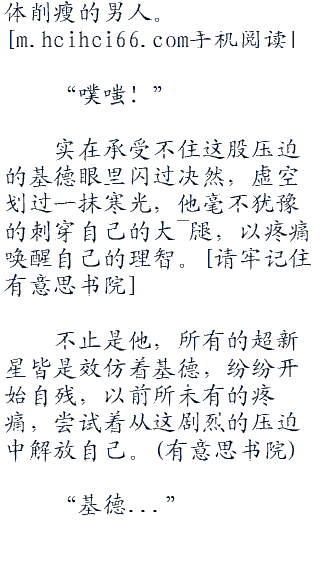 体削瘦的男人。
[m.hcihci66.com手机阅读|
“噗嗤！”
实在承受不住这股压迫
的基德眼里闪过决然，虚空
划过一抹寒光，他毫不犹豫
的刺穿自己的大¯腿，以疼痛
唤醒自己的理智。[请牢记住
有意思书院]
不止是他，所有的超新
星皆是效仿着基德，纷纷开
始自残，以前所未有的疼
痛，尝试着从这剧烈的压迫
中解放自己。(有意思书院)
“基德...”